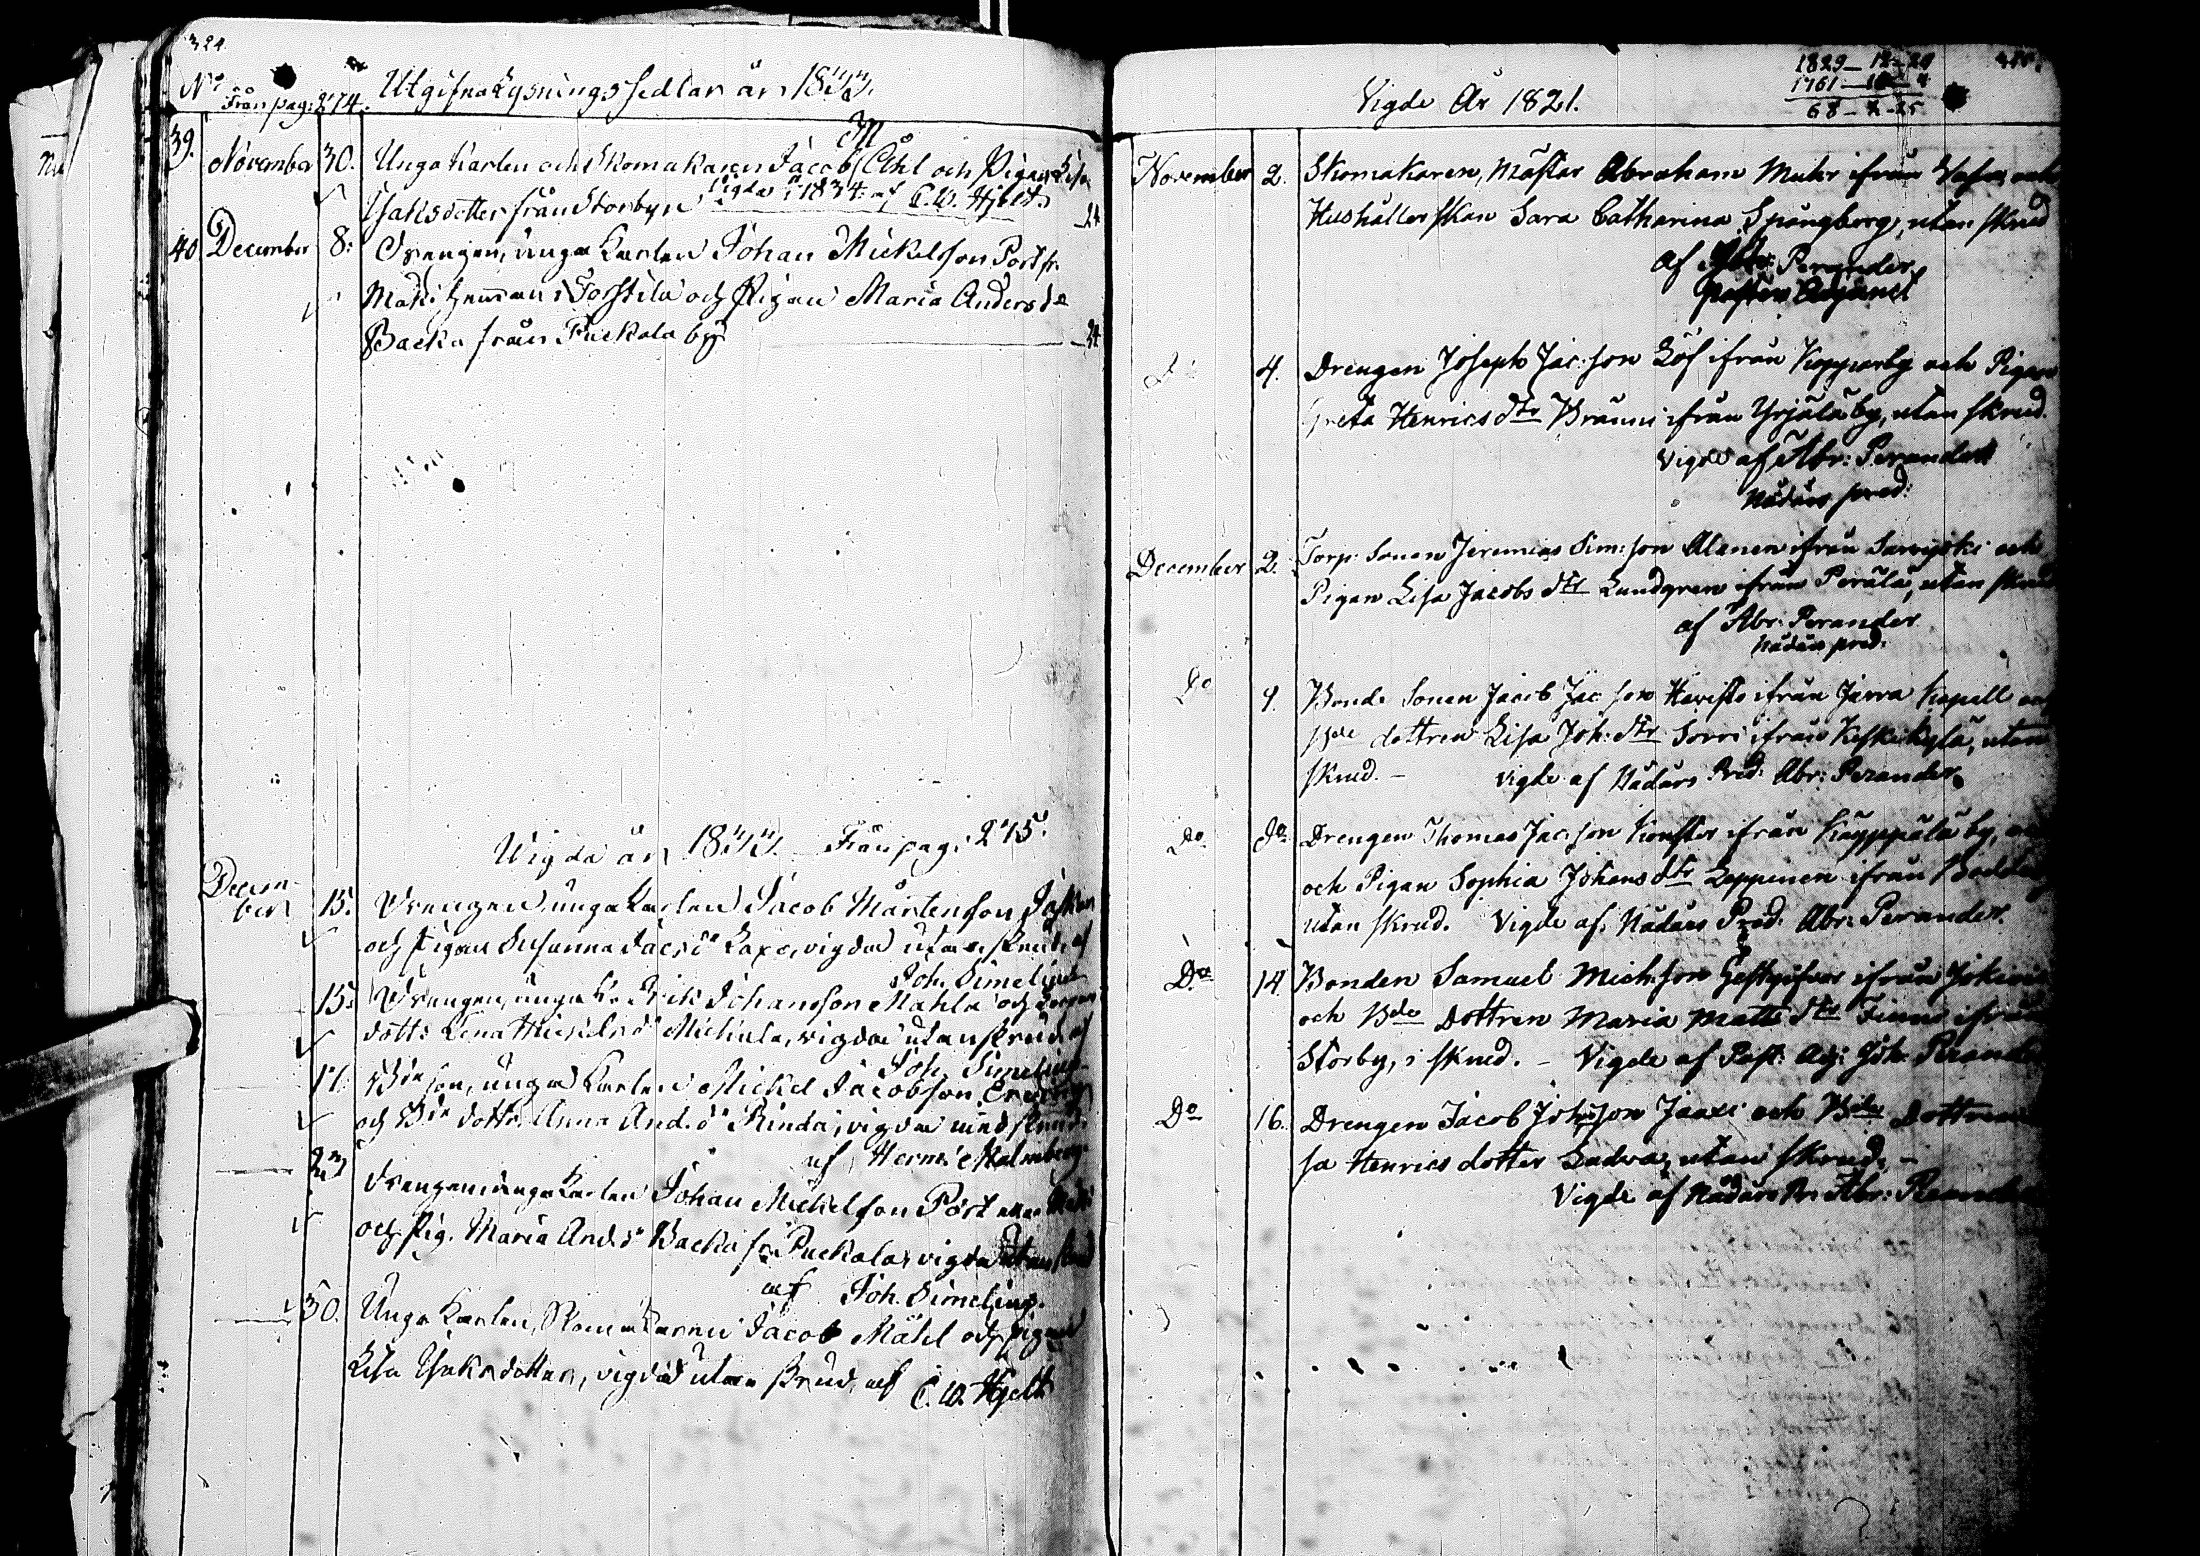 324.
No
Från pag: 274. Utgifna Lysningssedlar år 1833.
39. November 30. Unga Karlen och Skomakaren Jacob Måhl och Pigan Lisa
Isaksdotter från Storbyn Vigda i 1834 af C. W. Hjelt. 24
40. December 8. Drengen, unga Karlen Johan Mickelsson Pört fr.
Mäki hemman i Torstila och Pigan Maria Anders dr
Backa från Puckala by 24
Wigda år 1833. Från pag: 275.
Decem-
ber 15. Drengen unga Karlen Jacob Mårtensson
och Pigan Susanna Jacs dr Laxo, vigda utan skrud af
Joh. Simelius
15. Drengen, unga K. Erik Johansson Mahla och
dottr Lena Michels dr Michiala, vigda utan skrud af
Joh. Simelius
17. Bde son, unga Karlen Mickel Jacobsson
och Bde dottr. Anna And. dr Rinda, vigda med skrud
af Herm: Malmberg.
23 Drengen unga Karlen Johan Mickelsson Pört
och Pig. Maria And. dr Backa fr. Puckala, vigda utan skrud
af Joh. Simelius.
30. Unga Karlen, Skomakaren Jacob Måhl och pigan
Lisa Isaksdotter, vigda utan skrud, af C. W. Hjelt
1829 — 12 — 29
1761 — 10 — 4
68 — 2 — 25
Vigde År 1821.
November 2. Skomakaren, Mästar Abraham Muhr ifrån Wasa och
Hushållerskan Sara Catharina Spångberg, utan skrud
af Joh: Perander
Pastors Adjunct
Do 4. Drengen Joseph Jac:son Löf ifrån Kopparby och Pigan
Greta Henrics dtr Bråuns ifrån Yrjälä by, utan skrud.
Vigde af Abr: Perander
Nådårs pred:
December 2. Torp. Sonen Jeremias Sim:son Alanen ifrån och
Pigan Lisa Jacobs dtr Lundgren ifrån Perälä, utan skrud
af Abr: Perander
Nådårs pred:
Do 9. Bonde Sonen Jacob Jac:son Havisto ifrån Jurva Kapell och
Bde dottren Lisa Joh: dtr Sorri ifrån Keskikylä, utan
skrud. — Vigde af Nådårs Pred: Abr: Perander
Do do Drengen Thomas Jac:son ifrån Kauppila by,
och Pigan Sophia Johans dtr Leppinen ifrån
utan skrud. Vigde af Nådårs Pred: Abr: Perander.
Do 14. Bonden Samuel Mich:son Gästgifvar ifrån
och Bde Dottren Maria Matts dtr Finne ifrån
Storby, i skrud. — Vigde af Past: Adj: Joh Perander
Do 16. Drengen Jacob Johsson Jaaxi och Bde Dottren
sa Henrics dotter Ladva, utan skrud. —
Vigde af Nådårs Pr: Abr: Perander